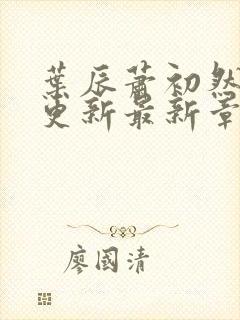 葉辰蕭初然
更新最新章
廖國清